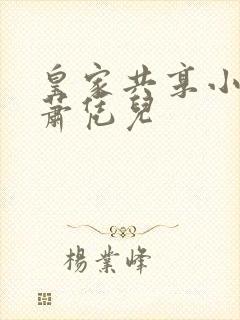 皇家共享小
蕭恁兒
楊業峰